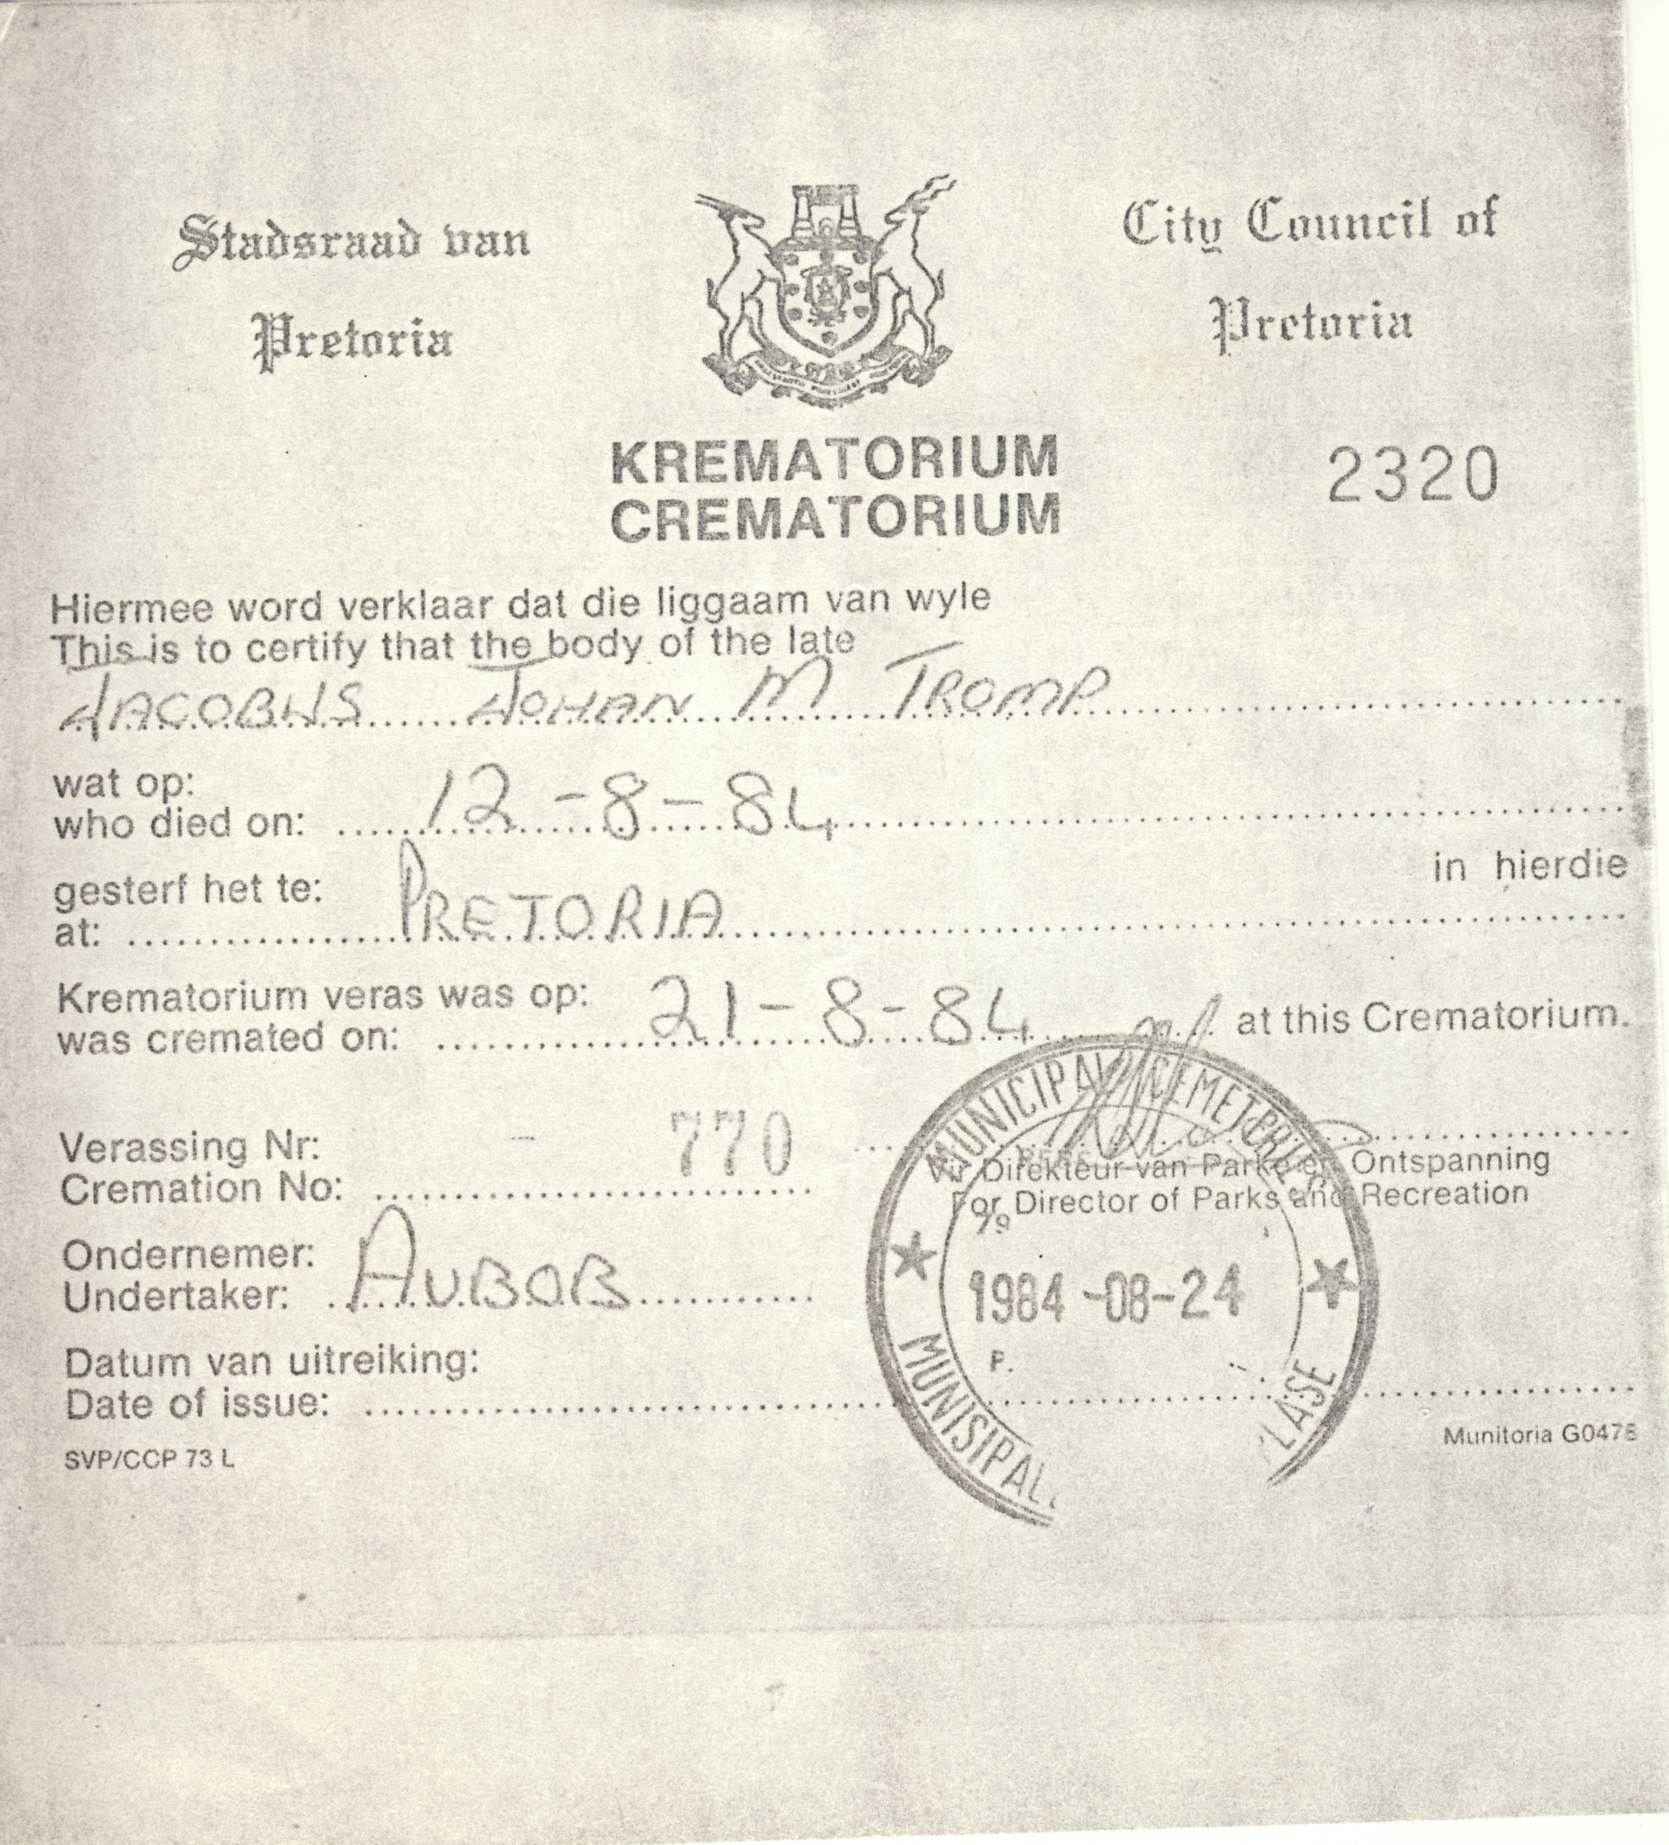 Stadsraad van
Pretoria
City Council of
Pretoria
KREMATORIUM
CREMATORIUM
2320
Hiermee word verklaar dat die liggaam van wyle
This is to certify that the body of the late
JACOBUS JOHAN M TROMP
wat op:
who died on: 12-8-84
gesterf het te:
at: PRETORIA
in hierdie
Krematorium veras was op:
was cremated on: 21-8-84 at this Crematorium.
Verassing Nr:
Cremation No: 770
Vir Direkteur van Parke en Ontspanning
For Director of Parks and Recreation
MUNICIPAL CEMETERIES
1984-08-24
P.
MUNISIPALE
LASE
Ondernemer:
Undertaker: AVBOB
Datum van uitreiking:
Date of issue:
SVP/CCP 73 L
Munitoria G0475